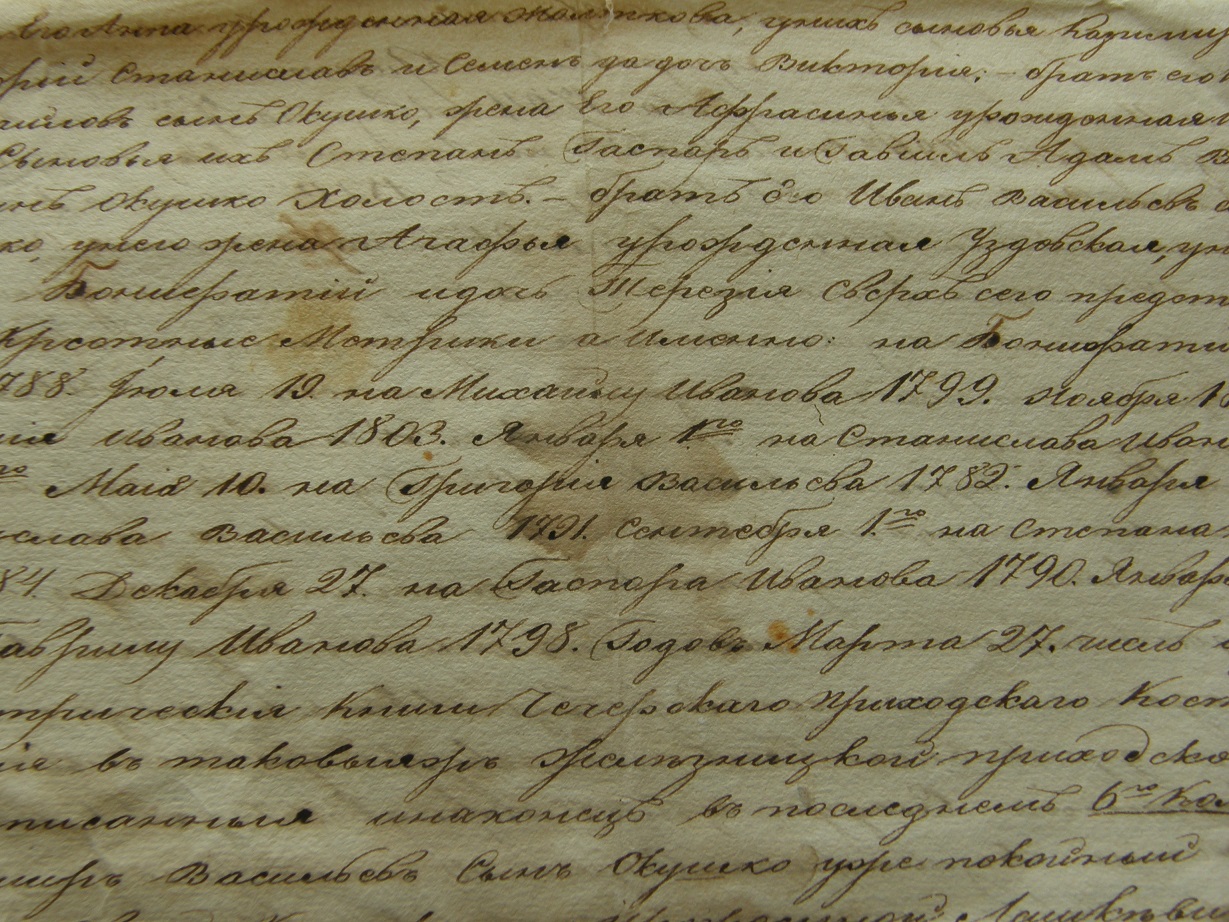 Его Анна урожденная Жолткова, у нихъ сыновья Казимир
Станиславъ и Семенъ да дочь Викторія; – братъ его
сынъ Окушко, жена Его Афрасинья урожденная
Сыновья ихъ Степанъ Гаспаръ и Гавріилъ Адамъ В
инъ Окушко Холостъ. – братъ Его Иванъ Васильевъ с
ко, у него жена Агафья урожденная Уздовская, у ни
Бонифатій и дочь Терезія Сверхъ сего предст
Крестные Метрики а именно: на Бонифаті
788. Іюля 19. на Михайлу Иванова 1799. Ноября 1
ія Иванова 1803. Января 1го на Станислава Иван
го Маія 10. на Григорія Васильева 1782. Января
слава Васильева 1791. Сентебря 1.го на Степана
84. Декабря 27. на Гаспора Иванова 1790. Январ
Гаврилу Иванова 1798. Годовъ Марта 27. числъ
трическія Книги Чечерскаго Приходскаго Кост
ія въ таковыяжъ Желѣзницкой приходско
писанныя инаконецъ въ последнемъ 6го Ко
миръ Васильевъ Сынъ Окушко уже покойный